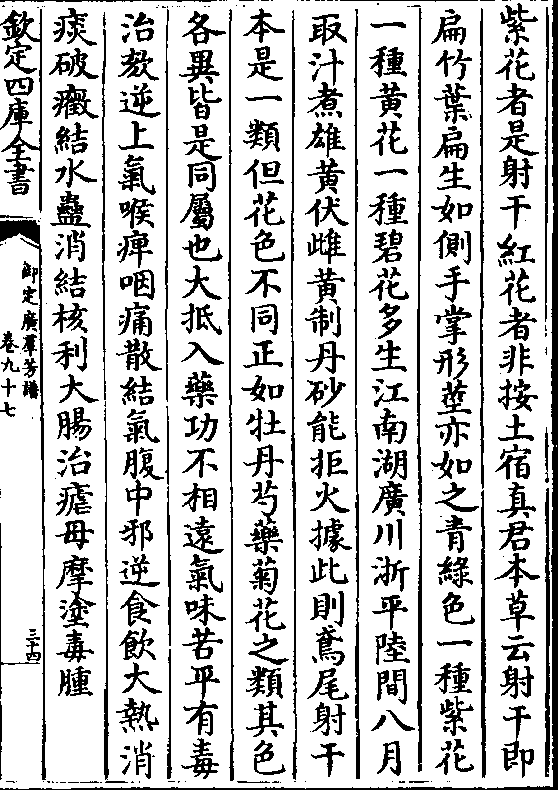 紫花者是射干紅花者非按土宿真君本草云射干即
扁竹葉扁生如側手掌形莖亦如之青綠色一種紫花
一種黄花一種碧花多生江南湖廣川浙平陸間八月
取汁煮雄黄伏雌黄制丹砂能拒火據此則鳶尾射干
本是一類但花色不同正如牡丹芍藥菊花之類其色
各異皆是同屬也大抵入藥功不相遠氣味苦平有毒
治欬逆上氣喉痺咽痛散結氣腹中邪逆食飲大熱消
痰破癥結水蠱消結核利大腸治瘧母摩塗毒腫
欽定四庫全書
御定廣羣芳譜
卷九十七
三十四